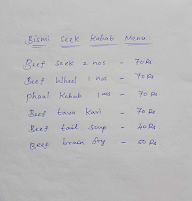 Bismi Seek Kabab Menu
Beef Seek 2 nos - 70 Rs
Beef Wheel 1 nos - 70 Rs
Phaal Kabab 1 nos - 70 Rs
Beef tava Kari - 70 Rs
Beef tail soup - 40 Rs
Beef brain fry - 60 Rs